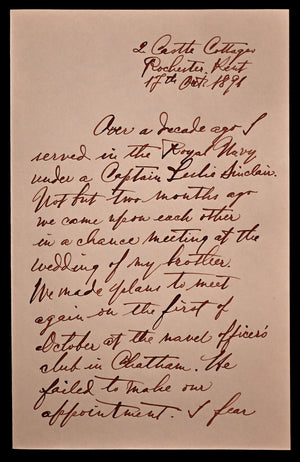 2 Castle Cottages
Rochester, Kent
17th Oct. 1891
Over a decade ago I
served in the Royal Navy
under a Captain Leslie Sinclair.
Not but two months ago
we came upon each other
in a chance meeting at the
wedding of my brother.
We made plans to meet
again on the first of
October at the naval officer's
club in Chatham. He
failed to make our
appointment. I fear